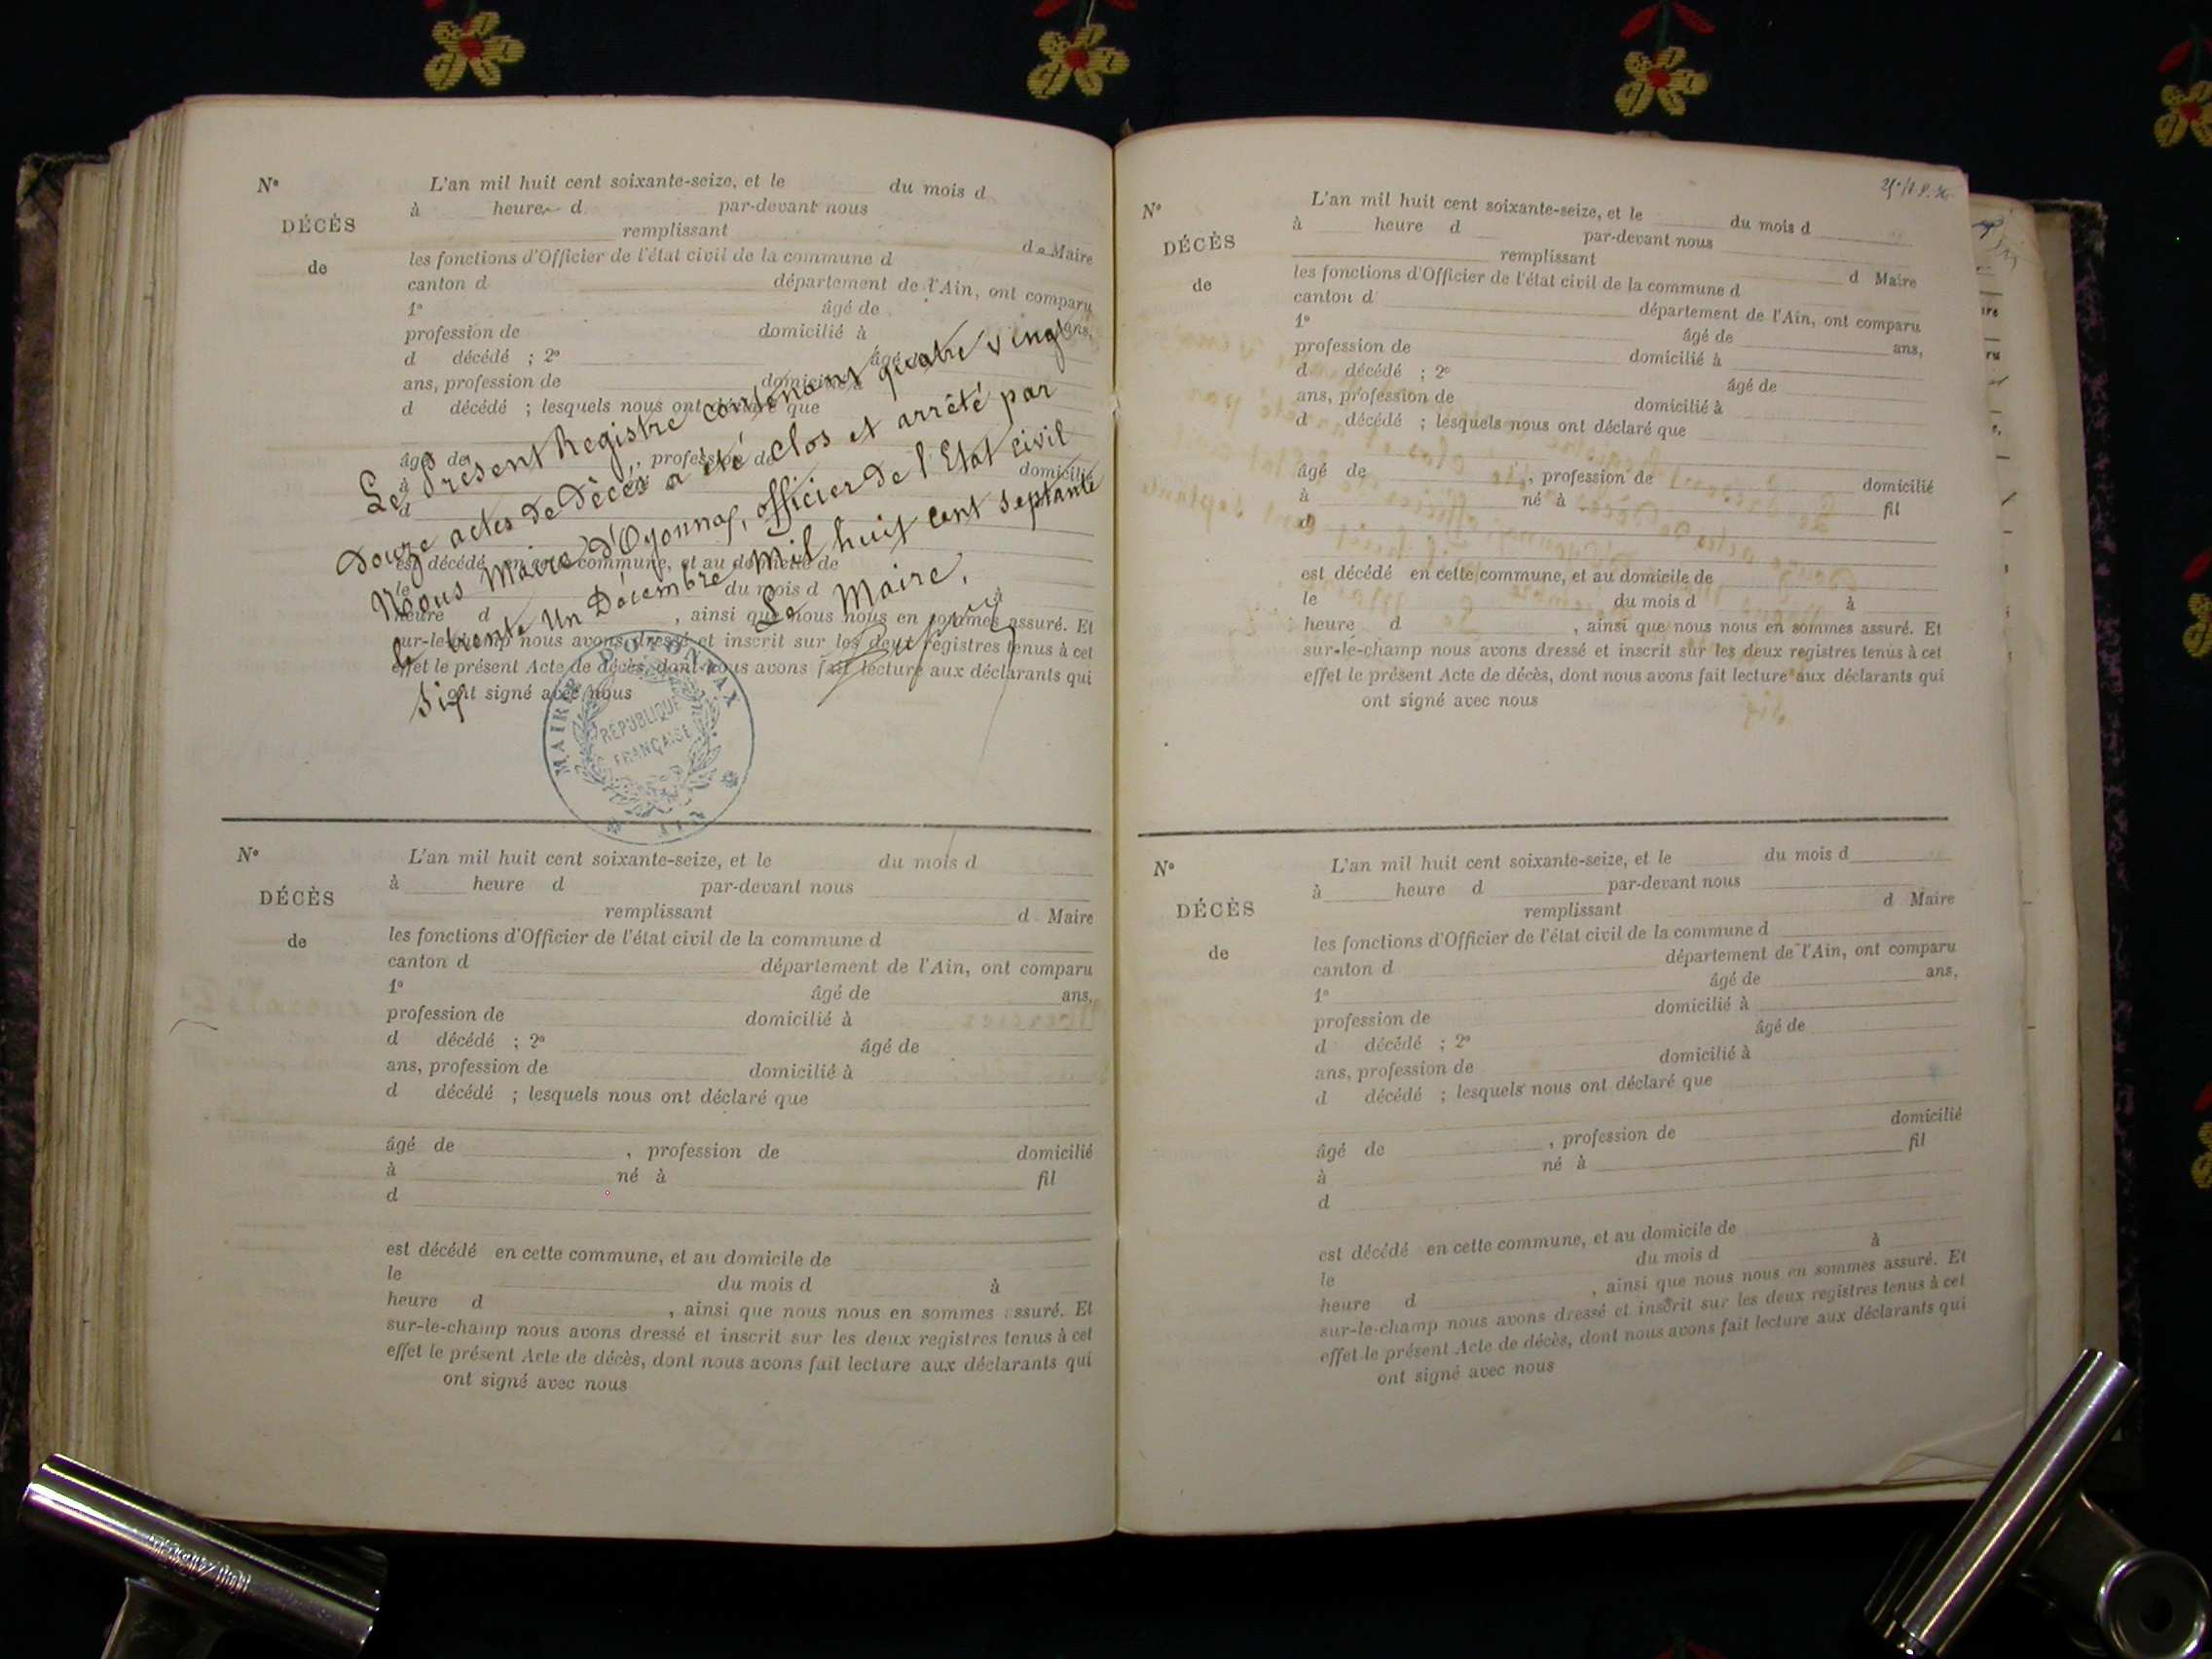 Nº
DÉCÈS
de
L'an mil huit cent soixante-seize, et le du mois d
à heure d par-devant nous
remplissant d Maire
les fonctions d'Officier de l'état civil de la commune d
canton d département de l'Ain, ont comparu
1º âgé de ans,
profession de domicilié à
d décédé ; 2º âgé
ans, profession de domicilié à
d décédé ; lesquels nous ont déclaré que
âgé de , profession de domicilié
à
d
est décédé en cette commune, et au domicile de
le du mois d à
heure d , ainsi que nous nous en sommes assuré. Et
sur-le-champ nous avons dressé et inscrit sur les deux registres tenus à cet
effet le présent Acte de décès, dont nous avons fait lecture aux déclarants qui
ont signé avec nous
Le Présent Registre contenant quatre vingt
Douze actes de Décès a été Clos et arrêté par
Nous Maire d'Oyonnax, officier de l'Etat civil
le trente Un Décembre Mil huit cent septante
Six
Le Maire,
MAIRIE D'OYONNAX
RÉPUBLIQUE
FRANÇAISE
Nº
DÉCÈS
de
L'an mil huit cent soixante-seize, et le du mois d
à heure d par-devant nous
remplissant d Maire
les fonctions d'Officier de l'état civil de la commune d
canton d département de l'Ain, ont comparu
1º âgé de ans,
profession de domicilié à
d décédé ; 2º âgé de
ans, profession de domicilié à
d décédé ; lesquels nous ont déclaré que
âgé de , profession de domicilié
à né à fil
d
est décédé en cette commune, et au domicile de
le du mois d à
heure d , ainsi que nous nous en sommes assuré. Et
sur-le-champ nous avons dressé et inscrit sur les deux registres tenus à cet
effet le présent Acte de décès, dont nous avons fait lecture aux déclarants qui
ont signé avec nous
Nº
DÉCÈS
de
L'an mil huit cent soixante-seize, et le du mois d
à heure d par-devant nous
remplissant d Maire
les fonctions d'Officier de l'état civil de la commune d
canton d département de l'Ain, ont comparu
1º âgé de ans,
profession de domicilié à
d décédé ; 2º âgé de
ans, profession de domicilié à
d décédé ; lesquels nous ont déclaré que
âgé de , profession de domicilié
à né à fil
d
est décédé en cette commune, et au domicile de
le du mois d à
heure d , ainsi que nous nous en sommes assuré. Et
sur-le-champ nous avons dressé et inscrit sur les deux registres tenus à cet
effet le présent Acte de décès, dont nous avons fait lecture aux déclarants qui
ont signé avec nous
Nº
DÉCÈS
de
L'an mil huit cent soixante-seize, et le du mois d
à heure d par-devant nous
remplissant d Maire
les fonctions d'Officier de l'état civil de la commune d
canton d département de l'Ain, ont comparu
1º âgé de ans,
profession de domicilié à
d décédé ; 2º âgé de
ans, profession de domicilié à
d décédé ; lesquels nous ont déclaré que
âgé de , profession de domicilié
à né à fil
d
est décédé en cette commune, et au domicile de
le du mois d à
heure d , ainsi que nous nous en sommes assuré. Et
sur-le-champ nous avons dressé et inscrit sur les deux registres tenus à cet
effet le présent Acte de décès, dont nous avons fait lecture aux déclarants qui
ont signé avec nous